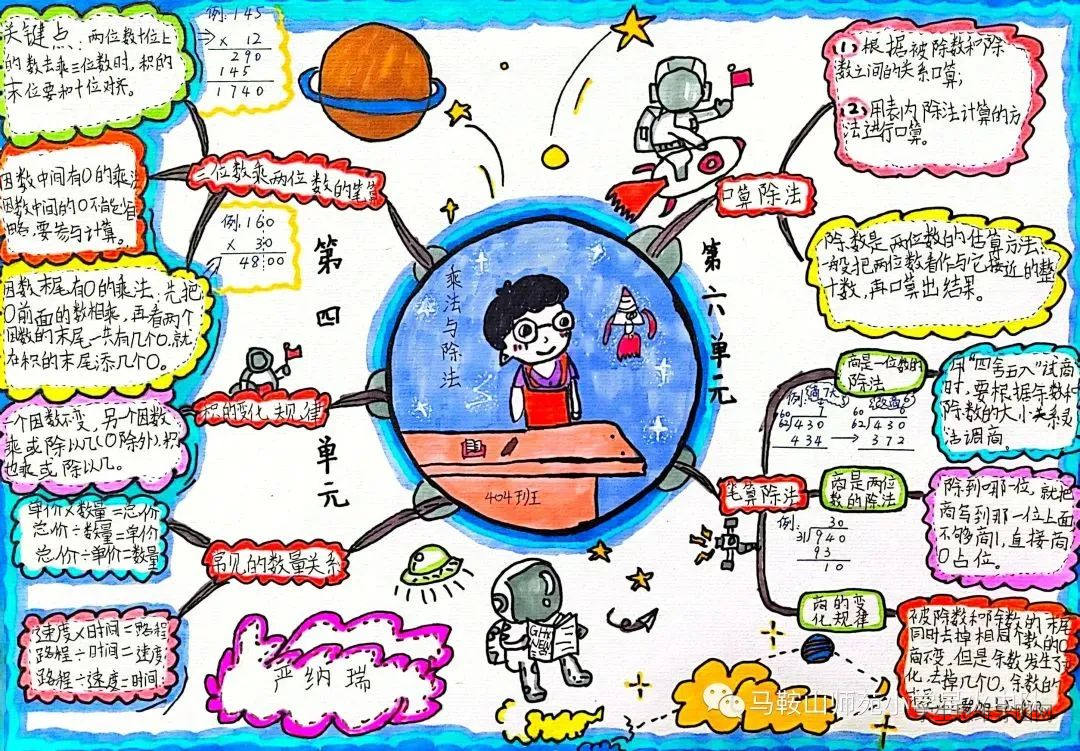 乘法与除法
404班
第四单元
三位数乘两位数的笔算
关键点：两位数十位上
的数去乘三位数时，积的
末位要和十位对齐。
例：145
× 12
290
145
1740
因数中间有0的乘法
因数中间的0不能省
略，要参与计算。
例：160
× 30
4800
因数末尾有0的乘法，先把
0前面的数相乘，再看两个
因数的末尾一共有几个0，就
在积的末尾添几个0。
积的变化规律
一个因数不变，另一个因数
乘或除以几（0除外），积
也乘或除以几。
常见的数量关系
单价×数量=总价
总价÷数量=单价
总价÷单价=数量
速度×时间=路程
路程÷时间=速度
路程÷速度=时间
严纳瑞
第六单元
口算除法
(1)根据被除数和除
数之间的关系口算；
(2)用表内除法计算的方
法进行口算。
除数是两位数的估算方法：
一般把两位数看作与它接近的整
十数，再口算出结果。
笔算除法
商是一位数的
除法
用"四舍五入"试商
时，要根据余数和
除数的大小关系灵
活调商。
例：
60
7
62)430
434
60
6
62)430
372
商是两位
数的除法
除到哪一位，就把
商写到那一位上面
不够商1，直接商
0占位。
例：
30
31)940
93
10
商的变
化规律
被除数和除数的末尾
同时去掉相同个数的0
商不变，但是余数发生了变
化，去掉几个0，余数的
马鞍山师苑小学